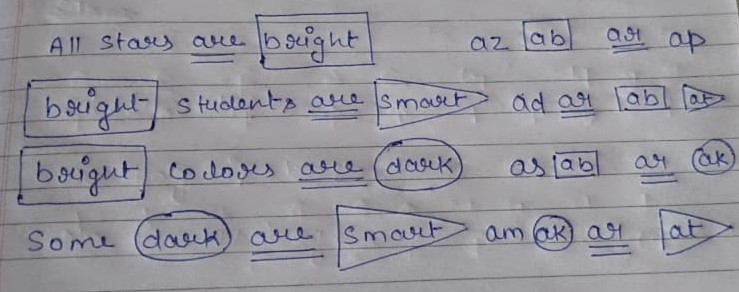 All stars are bright az ab ar ap
bright students are smart ad ar ab at
bright colors are dark as ab ar ak
Some dark are smart am ak ar at